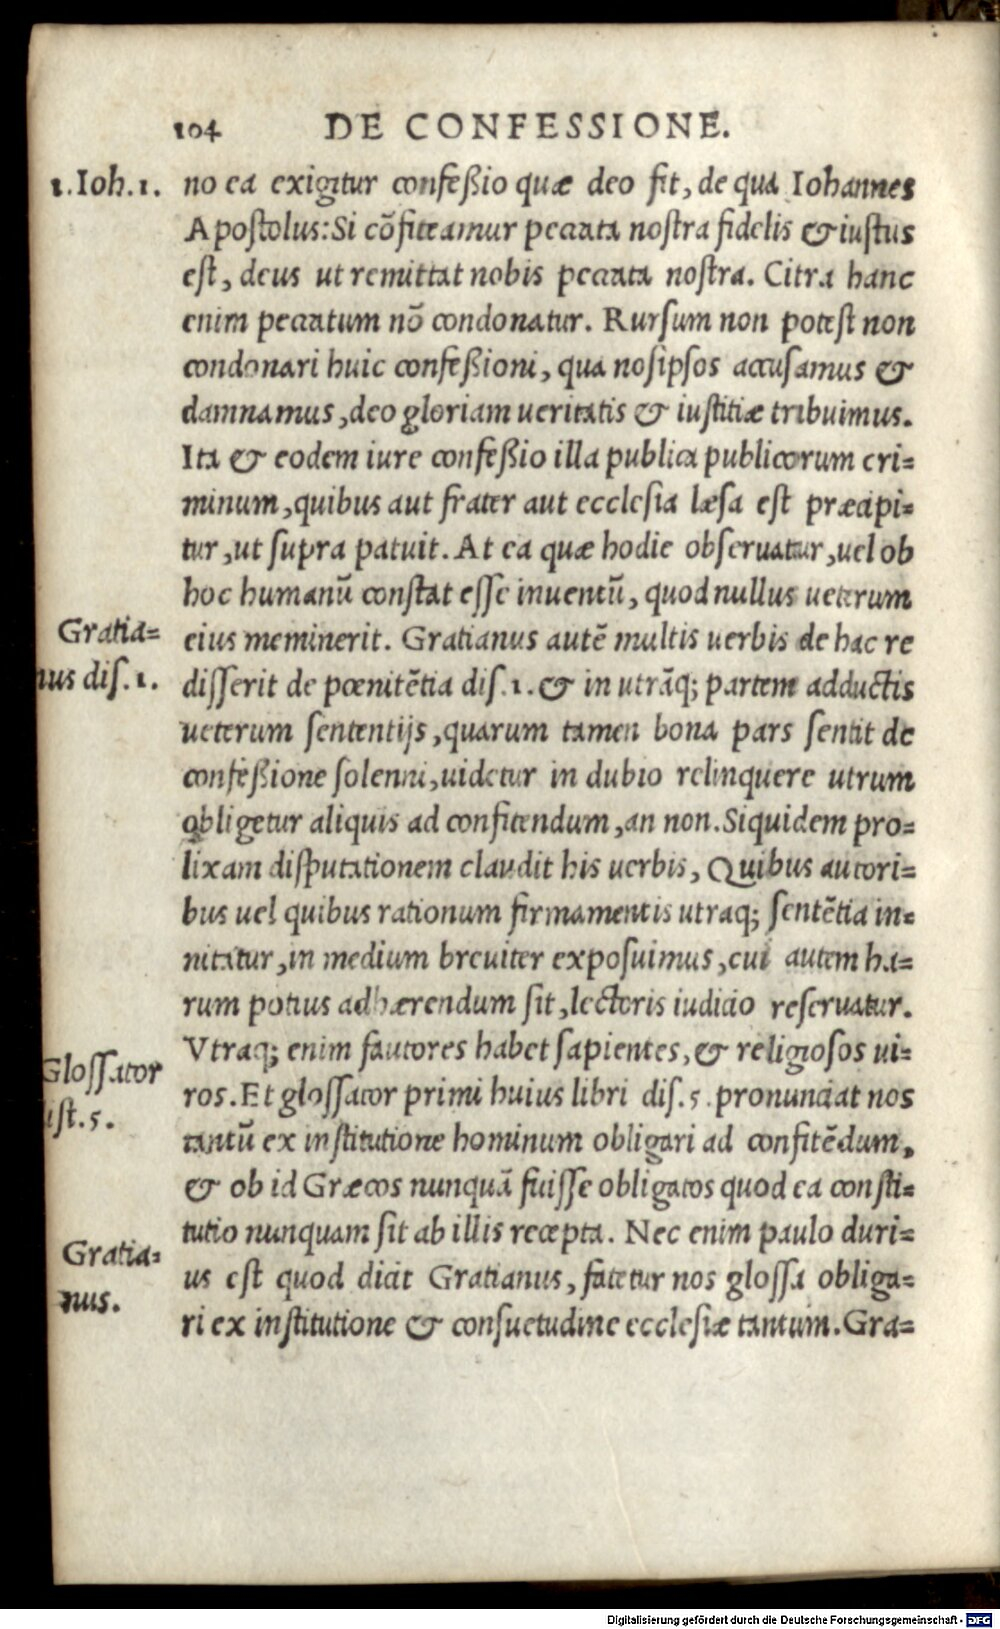 104 DE CONFESSIONE.
1.Ioh.1. no ea exigitur confeßio quæ deo fit, de qua Iohannes
Apostolus: Si cõfiteamur peccata nostra fidelis & iustus
est, deus ut remittat nobis peccata nostra. Citra hanc
enim peccatum nõ condonatur. Rursum non potest non
condonari huic confeßioni, qua nosipsos accusamus &
damnamus, deo gloriam ueritatis & iustitiæ tribuimus.
Ita & eodem iure confeßio illa publica publicorum cri=
minum, quibus aut frater aut ecclesia læsa est præcipi=
tur, ut supra patuit. At ea quæ hodie obseruatur, uel ob
hoc humanũ constat esse inuentũ, quod nullus ueterum
Gratia= eius meminerit. Gratianus autẽ multis uerbis de hac re
nus dis.1. disserit de pœnitẽtia dis.1. & in utrãq; partem adductis
ueterum sententijs, quarum tamen bona pars sentit de
confeßione solenni, uidetur in dubio relinquere utrum
obligetur aliquis ad confitendum, an non. Siquidem pro=
lixam disputationem claudit his uerbis, Quibus autori=
bus uel quibus rationum firmamentis utraq; sentẽtia in=
nitatur, in medium breuiter exposuimus, cui autem ha=
rum potius adhærendum sit, lectoris iudicio reseruatur.
Vtraq; enim fautores habet sapientes, & religiosos ui=
Glossator ros. Et glossator primi huius libri dis.5. pronunciat nos
ist.5. tantũ ex institutione hominum obligari ad confitẽdum,
& ob id Græcos nunquã fuisse obligatos quod ea consti=
tutio nunquam sit ab illis recepta. Nec enim paulo duri=
Gratia= us est quod dicit Gratianus, fatetur nos glossa obliga=
nus. ri ex institutione & consuetudine ecclesiæ tantum. Gra=
Digitalisierung gefördert durch die Deutsche Forschungsgemeinschaft - DFG